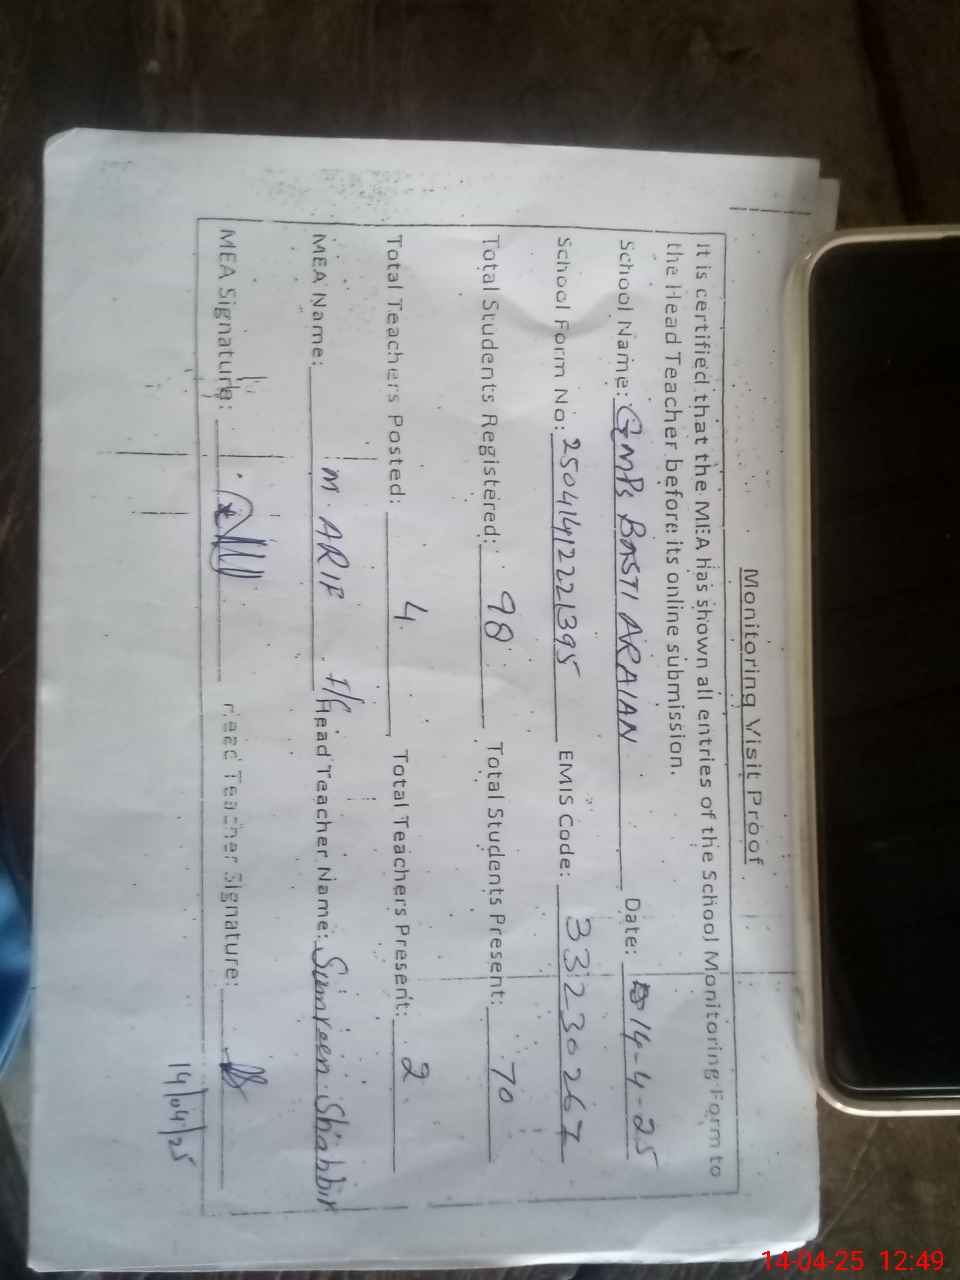 Monitoring Visit Proof
It is certified that the MEA has shown all entries of the School Monitoring Form to
the Head Teacher before its online submission.
School Name: GMPS BASTI ARAIAN Date: 14-4-25
School Form No: 25041412221395 EMIS Code: 33230267
Total Students Registered: 98 Total Students Present: 70
Total Teachers Posted: 4 Total Teachers Present: 2
MEA Name: M. ARIF I/C Head Teacher Name: Sumreen Shabbir
MEA Signature: Head Teacher Signature:
14/04/25
14-04-25 12:49